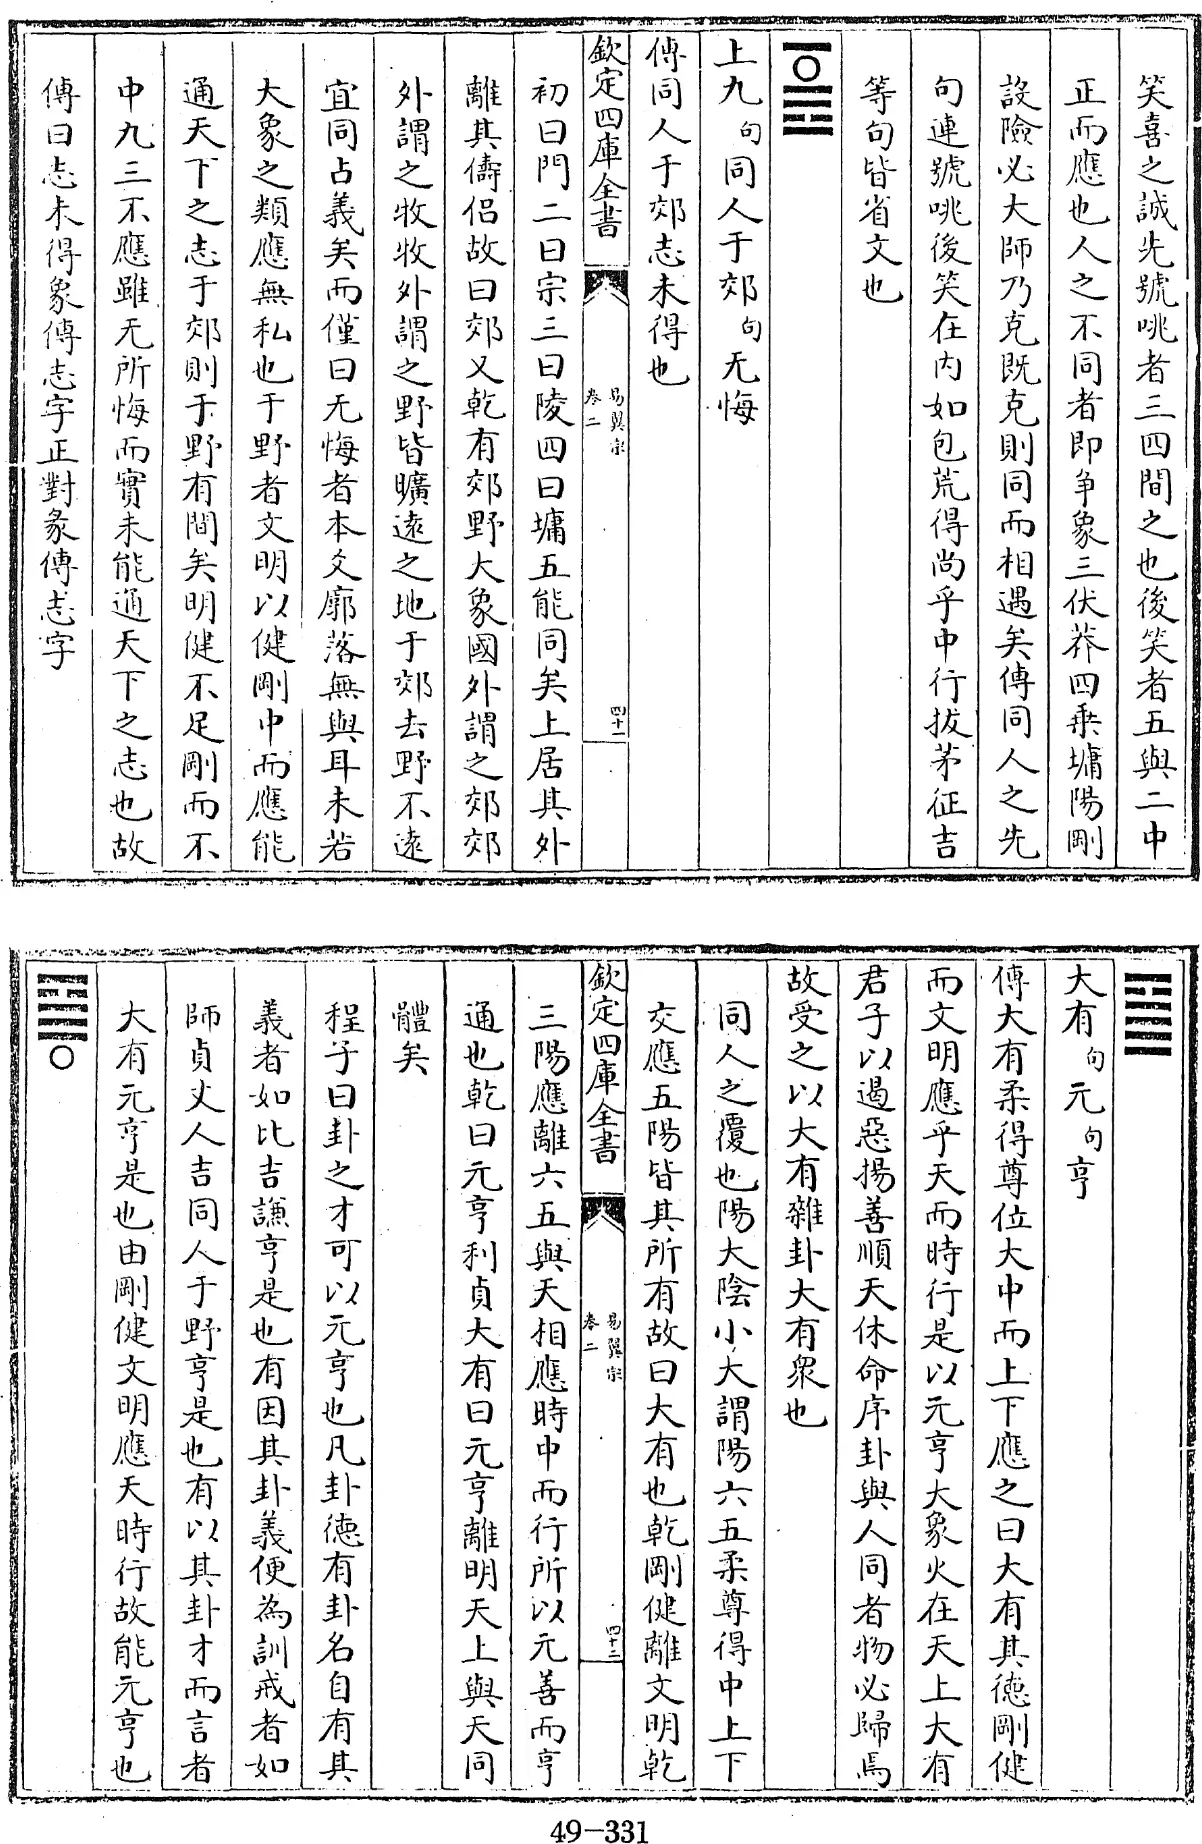 笑喜之誠先號咷者三四間之也後笑者五與二中
正而應也人之不同者即争象三伏莽四乗墉陽剛
設險必大師乃克既克則同而相遇矣傳同人之先
句連號咷後笑在内如包荒得尚乎中行拔茅征吉
等句皆省文也
上九句同人于郊句无悔
傳同人于郊志未得也
欽定四庫全書
易翼宗
卷二
四十一
初曰門二曰宗三曰陵四曰墉五能同矣上居其外
離其儔侣故曰郊又乾有郊野大象國外謂之郊郊
外謂之牧牧外謂之野皆曠逺之地于郊去野不逺
宜同占義矣而僅曰无悔者本爻廓落無與耳未若
大象之類應無私也于野者文明以健剛中而應能
通天下之志于郊則于野有間矣明健不足剛而不
中九三不應雖无所悔而實未能通天下之志也故
傳曰志未得象傳志字正對彖傳志字
大有句元句亨
傳大有柔得尊位大中而上下應之曰大有其德剛健
而文明應乎天而時行是以元亨大象火在天上大有
君子以遏惡揚善順天休命序卦與人同者物必歸焉
故受之以大有雜卦大有衆也
同人之覆也陽大陰小大謂陽六五柔尊得中上下
交應五陽皆其所有故曰大有也乾剛健離文明乾
欽定四庫全書
易翼宗
卷二
四十二
三陽應離六五與天相應時中而行所以元善而亨
通也乾曰元亨利貞大有曰元亨離明天上與天同
體矣
程子曰卦之才可以元亨也凡卦德有卦名自有其
義者如比吉謙亨是也有因其卦義便為訓戒者如
師貞丈人吉同人于野亨是也有以其卦才而言者
大有元亨是也由剛健文明應天時行故能元亨也
49-331